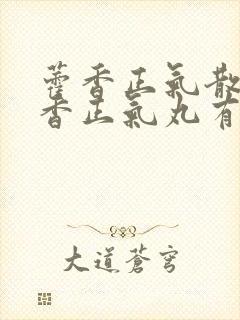 藿香正氣散
香正氣丸有
大道蒼穹